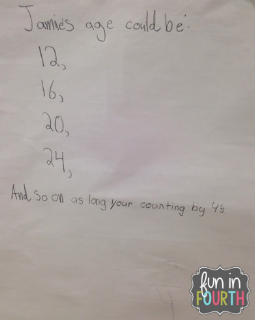 Jamie's age could be:
12,
16,
20,
24,
And so on as long your counting by 4s
fun in
FOURTH